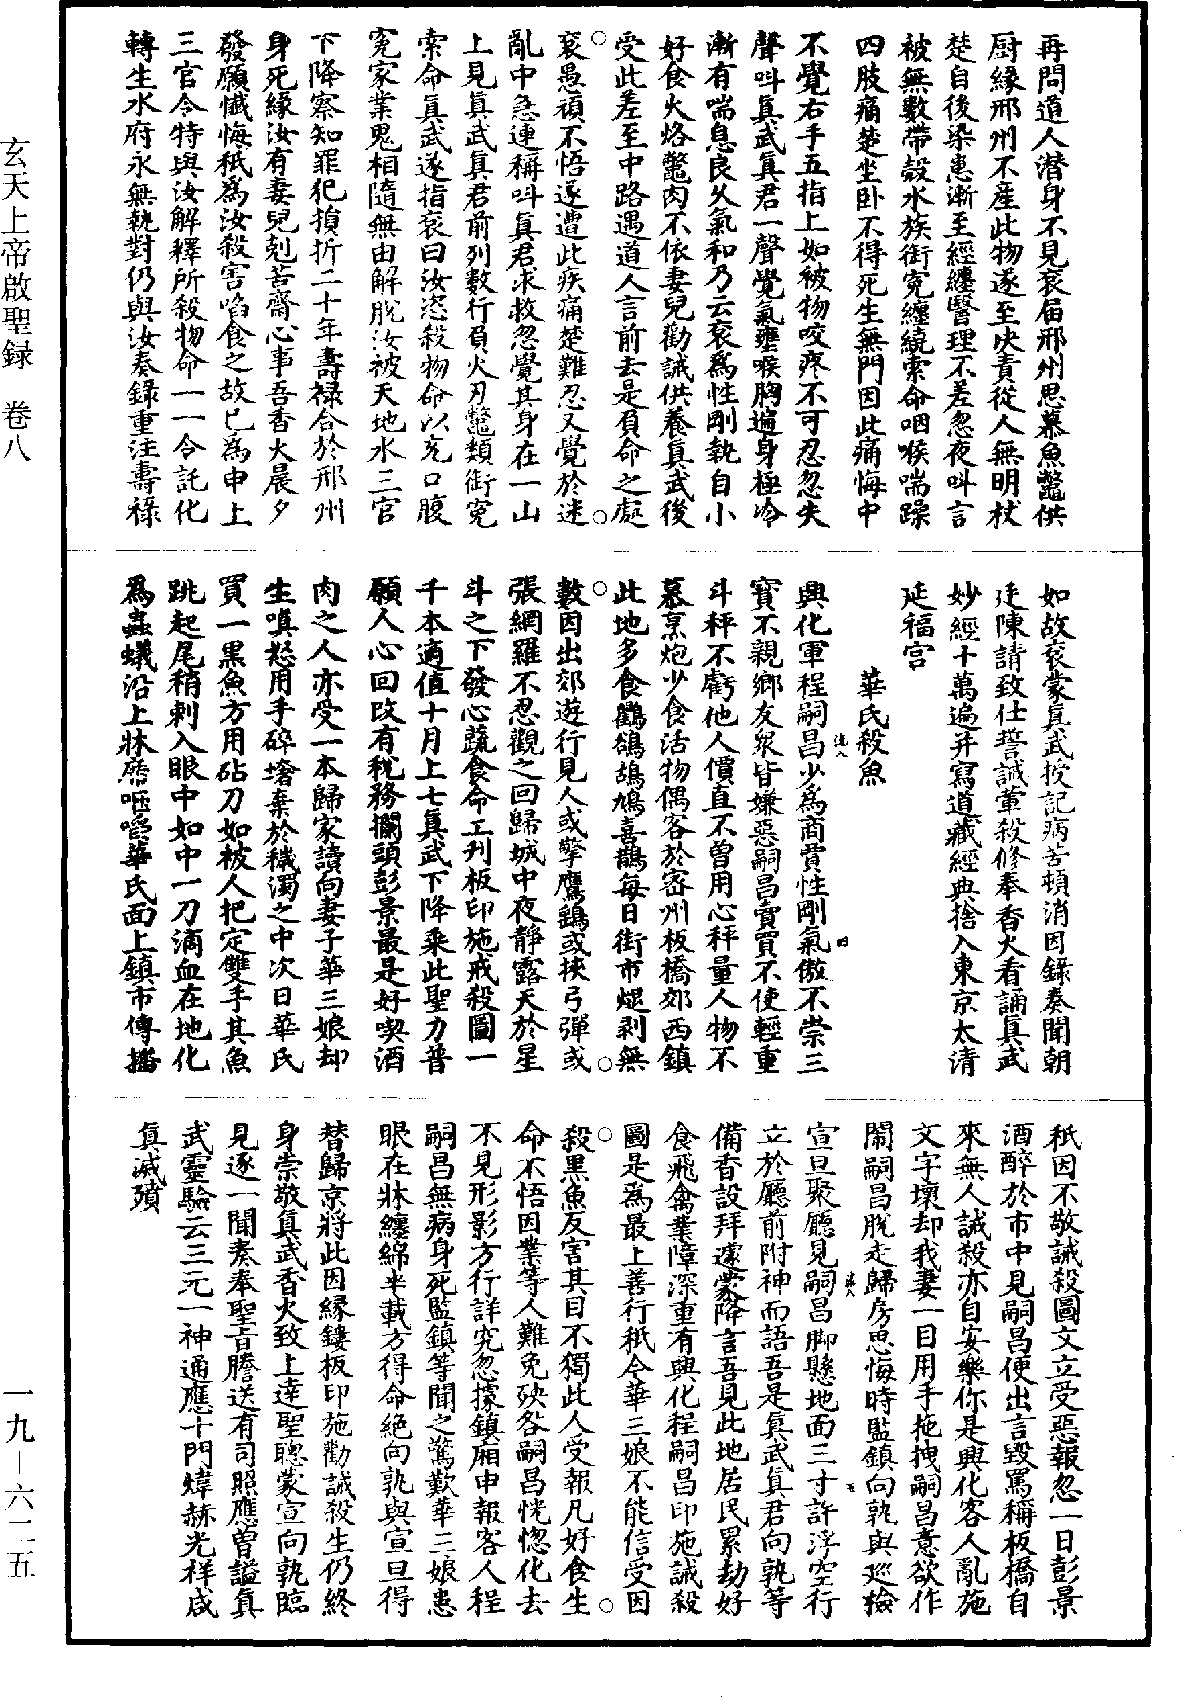 再問道人潛身不見裒届邢州思慕魚鼈供
厨緣邢州不產此物遂至决責從人無明杖
楚自後染患漸至經纏醫理不差忽夜叫言
被無數帶殼水族銜寃纏繞索命咽喉喘躁
四肢痛楚坐卧不得死生無門因此痛悔中
不覺右手五指上如被物咬疼不可忍忽失
聲叫真武真君一聲覺氣壅喉胸遍身極冷
漸有喘息良久氣和乃云裒為性剛執自小
好食火烙鼈肉不依妻兒勸誡供養真武後
受此差至中路遇道人言前去是負命之處
裒愚頑不悟遂遭此疾痛楚難忍又覺於迷
亂中急連稱叫真君求救忽覺其身在一山
上見真武真君前列數行負火刃鼈類銜寃
索命真武遂指裒曰汝恣殺物命以充口腹
寃家業鬼相隨無由解脫汝被天地水三官
下降察知罪犯損折二十年壽祿合於邢州
身死緣汝有妻兒剋苦齋心事吾香火晨夕
發願懺悔秖為汝殺害啗食之故已為申上
三官令特與汝解釋所殺物命一一令託化
轉生水府永無執對仍與汝奏錄重注壽祿
如故裒蒙真武授記病苦頓消因錄奏聞朝
廷陳請致仕誓誡葷殺修奉香火看誦真武
妙經十萬遍并寫道藏經典捨入東京太清
延福宮
華氏殺魚
興化軍程嗣昌少為商賈性剛氣傲不崇三
寶不親鄉友衆皆嫌惡嗣昌賣買不使輕重
斗秤不虧他人價直不曾用心秤量人物不
慕烹炮少食活物偶客於密州板橋郊西鎮
此地多食鸜鵒鴣鳩喜鵲每日街市煺剥無
數因出郊遊行見人或擎鷹鷂或挾弓彈或
張網羅不忍觀之回歸城中夜靜露天於星
斗之下發心蔬食命工刋板印施戒殺圖一
千本適值十月上七真武下降乘此聖力普
願人心回改有稅務攔頭彭景最是好喫酒
肉之人亦受一本歸家讀向妻子華三娘却
生嗔怒用手碎撦棄於穢濁之中次日華氏
買一黑魚方用砧刀如被人把定雙手其魚
跳起尾稍刺入眼中如中一刀滴血在地化
為蟲蟻沿上牀𢊍咂嚼華氏面上鎮市傳播
秖因不敬誡殺圖文立受惡報忽一日彭景
酒醉於市中見嗣昌便出言毀罵稱板橋自
來無人誡殺亦自安樂你是興化客人亂施
文字壞却我妻一目用手拖拽嗣昌意欲作
鬧嗣昌脫走歸房思悔時監鎮向孰與巡檢
宣旦聚廳見嗣昌脚懸地面三寸許浮空行
立於廳前附神而語吾是真武真君向孰等
備香設拜遽蒙降言吾見此地居民累劫好
食飛禽業障深重有興化程嗣昌印施誡殺
圖是為最上善行秖今華三娘不能信受因
殺黑魚反害其目不獨此人受報凡好食生
命不悟因業等人難免殃咎嗣昌恍惚化去
不見形影方行詳究忽據鎮廂申報客人程
嗣昌無病身死監鎮等聞之驚歎華三娘患
眼在牀纏綿半載方得命絶向孰與宣旦得
替歸京將此因緣鏤板印施勸誡殺生仍終
身崇敬真武香火致上達聖聰蒙宣向孰臨
見逐一聞奏奉聖旨謄送有司照應曾謚真
武靈驗云三元一神通應十門煒赫光祥咸
真滅殰
玄天上帝啟聖録　卷八
一九—六二五